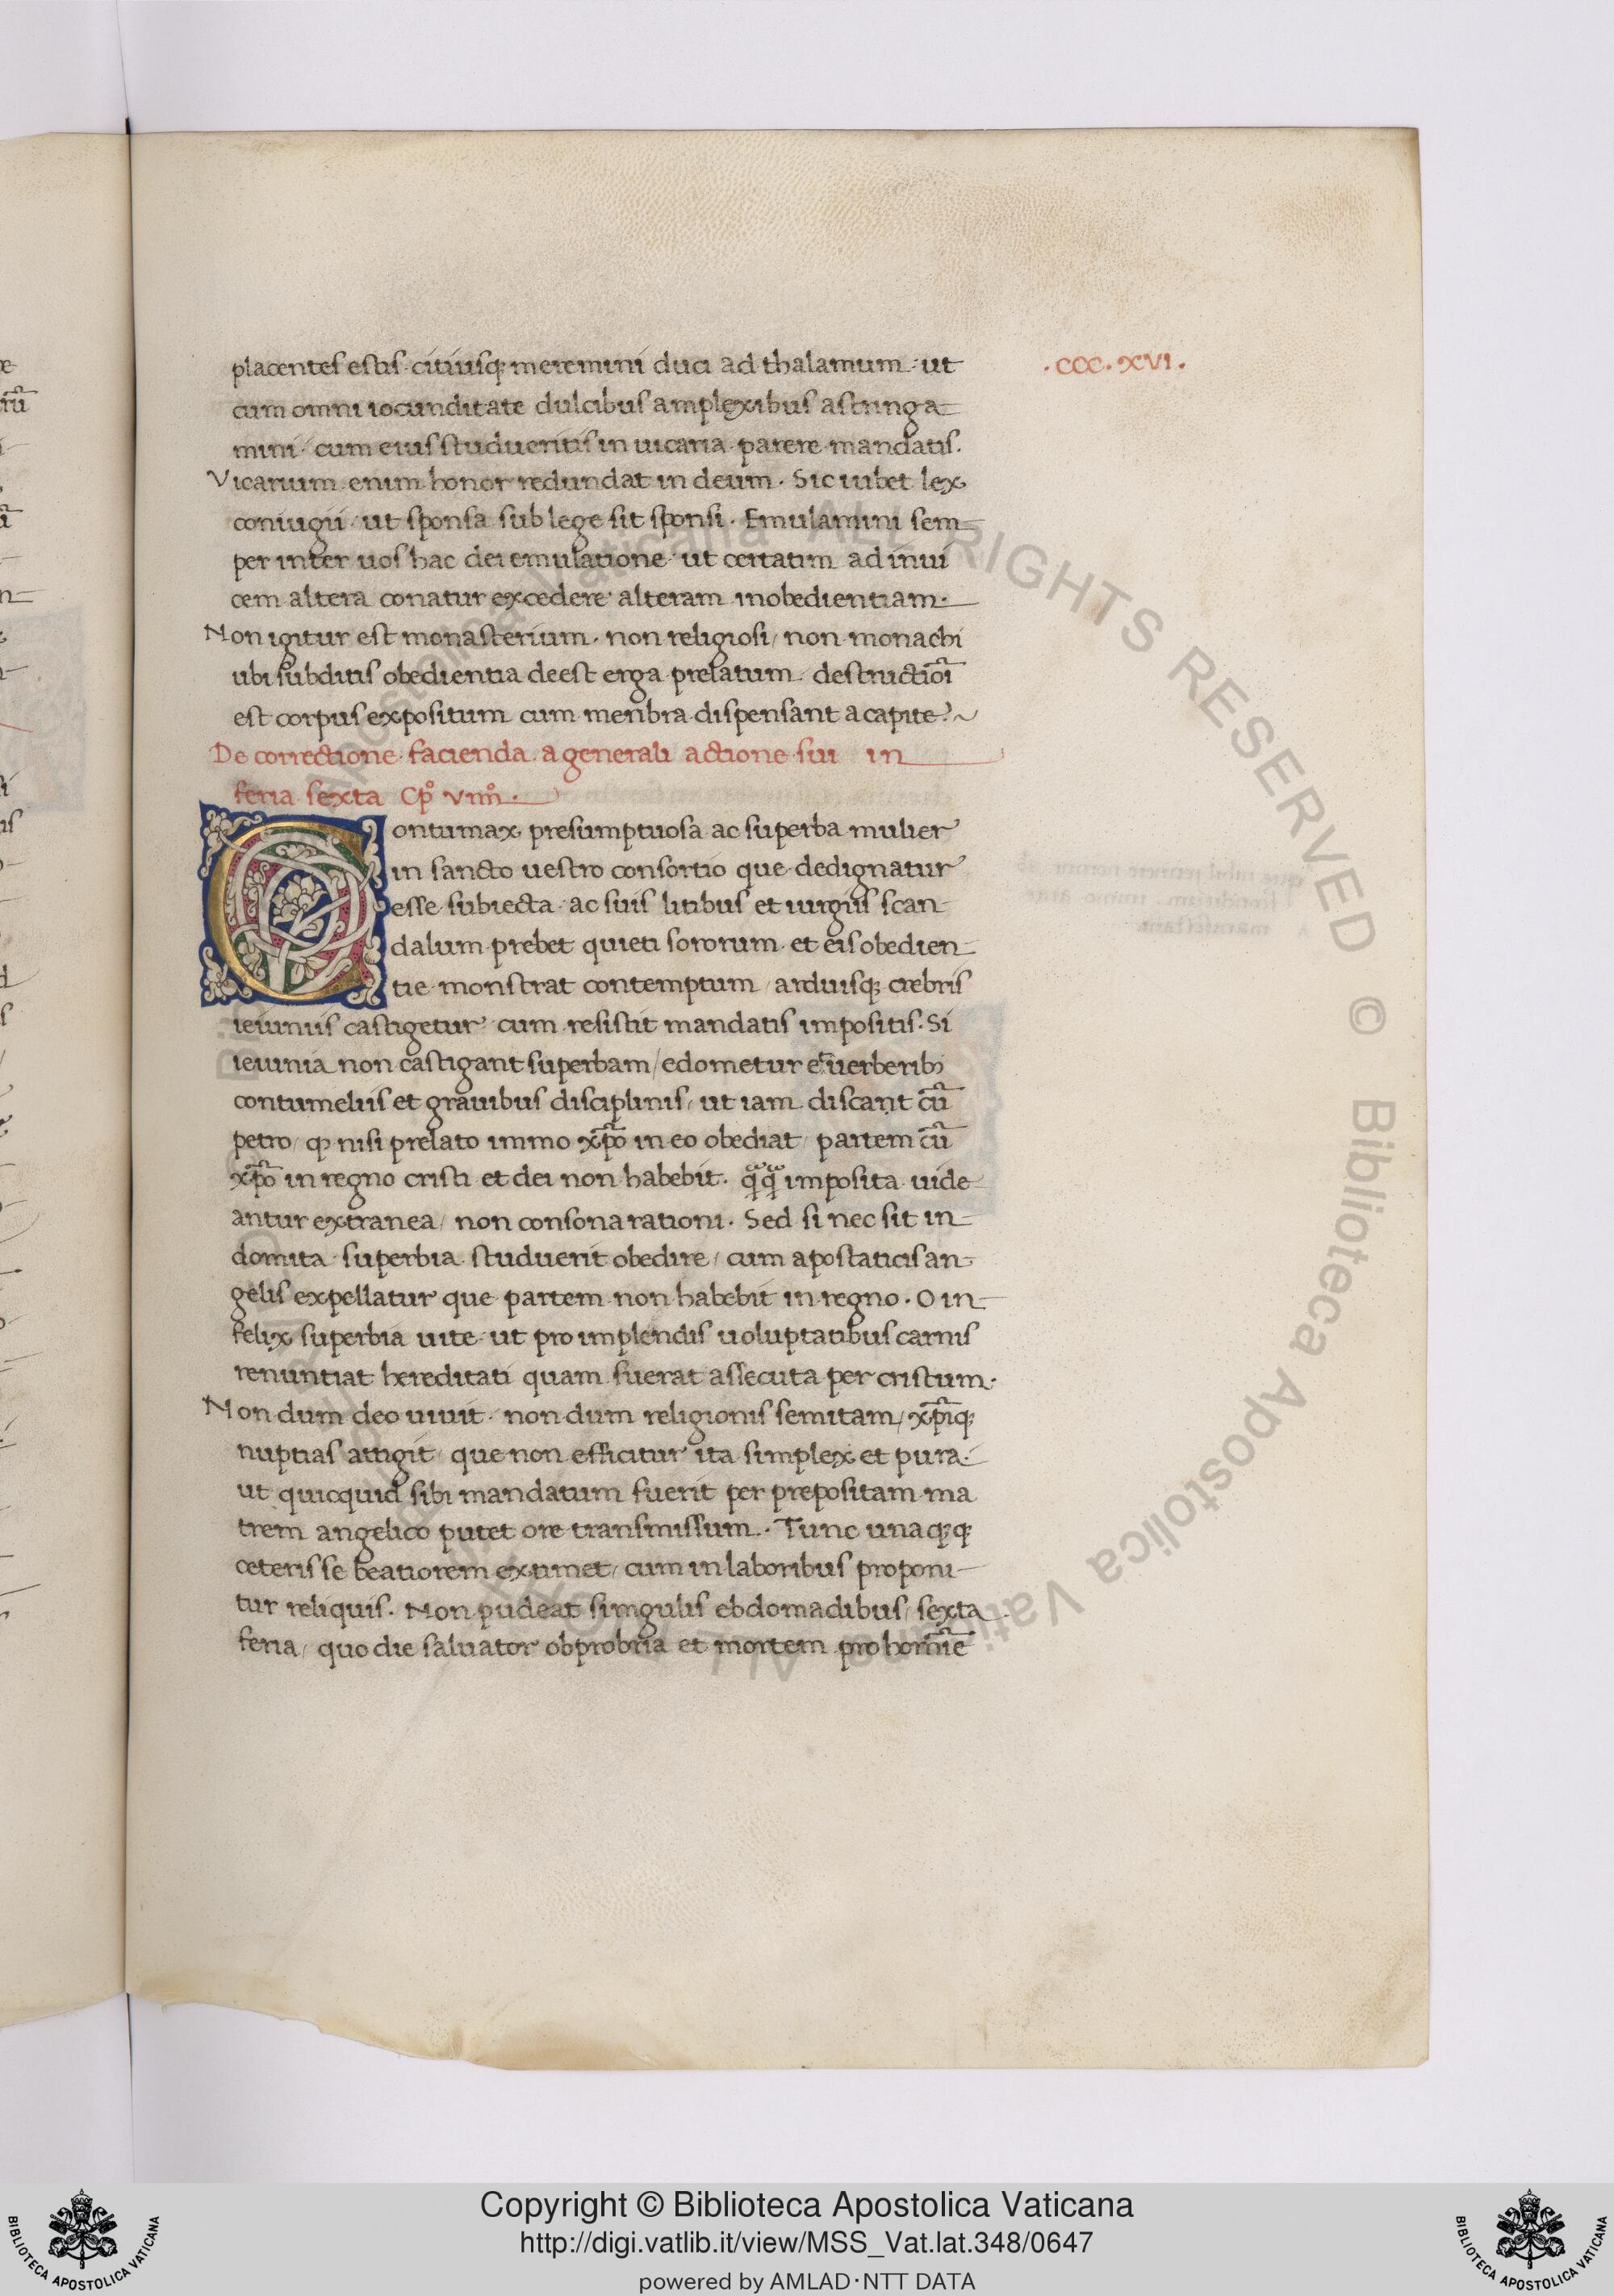 placentes estis. citiusq; meremini duci ad thalamum. ut
cum omni iocunditate dulcibus amplexibus astringa-
mini. cum eius studueritis in uicaria parere mandatis.
Vicarium enim honor redundat in deum. Sic iubet lex
coniugii. ut sponsa sub lege sit sponsi. Emulamini sem-
per inter uos hac dei emulatione. ut certatim ad inui
cem altera conatur excedere alteram inobedientiam.
Non igitur est monasterium. non religiosi / non monachi
ubi subditis obedientia deest erga prelatum. destructiōi
est corpus expositum cum menbra dispensant a capite.
De correctione facienda a generali actione sui in
feria sexta Cp° VIIII°.
Contumax presumptuosa ac superba mulier
in sancto uestro consortio que dedignatur
esse subiecta ac suis litibus et iurgiis scan-
dalum prebet quieti sororum et eis obedien-
tie monstrat contemptum / arduisq; crebris
ieiuniis castigetur cum resistit mandatis impositis. Si
ieiunia non castigant superbam / edometur et uerberib;
contumeliis et grauibus disciplinis / ut iam discant cū
petro / qƺ nisi prelato immo xp̄o in eo obediat / partem cū
xp̄o in regno cristi et dei non habebit. q̃q̃ imposita uide
antur extranea / non consona rationi. Sed si nec sit in-
domita superbia studuerit obedire / cum apostaticis an-
gelis expellatur que partem non habebit in regno. O in-
felix superbia uite. ut pro implendis uoluptatibus carnis
renuntiat hereditati quam fuerat assecuta per cristum.
Non dum deo uiuit. non dum religionis semitam / xp̄iq;
nuptias attigit / que non efficitur ita simplex et pura.
ut quicquid sibi mandatum fuerit per prepositam ma
trem angelico putet ore transmissum. Tunc unaq;q;
ceteris se beatiorem extimet / cum in laboribus proponi-
tur reliquis. Non pudeat simgulis ebdomadibus / sexta
feria / quo die saluator obprobria et mortem pro homīe
.CCC.XVI.
Copyright © Biblioteca Apostolica Vaticana
http://digi.vatlib.it/view/MSS_Vat.lat.348/0647
powered by AMLAD·NTT DATA
BIBLIOTECA APOSTOLICA VATICANA
BIBLIOTECA APOSTOLICA VATICANA
ALL RIGHTS RESERVED © Biblioteca Apostolica Vaticana